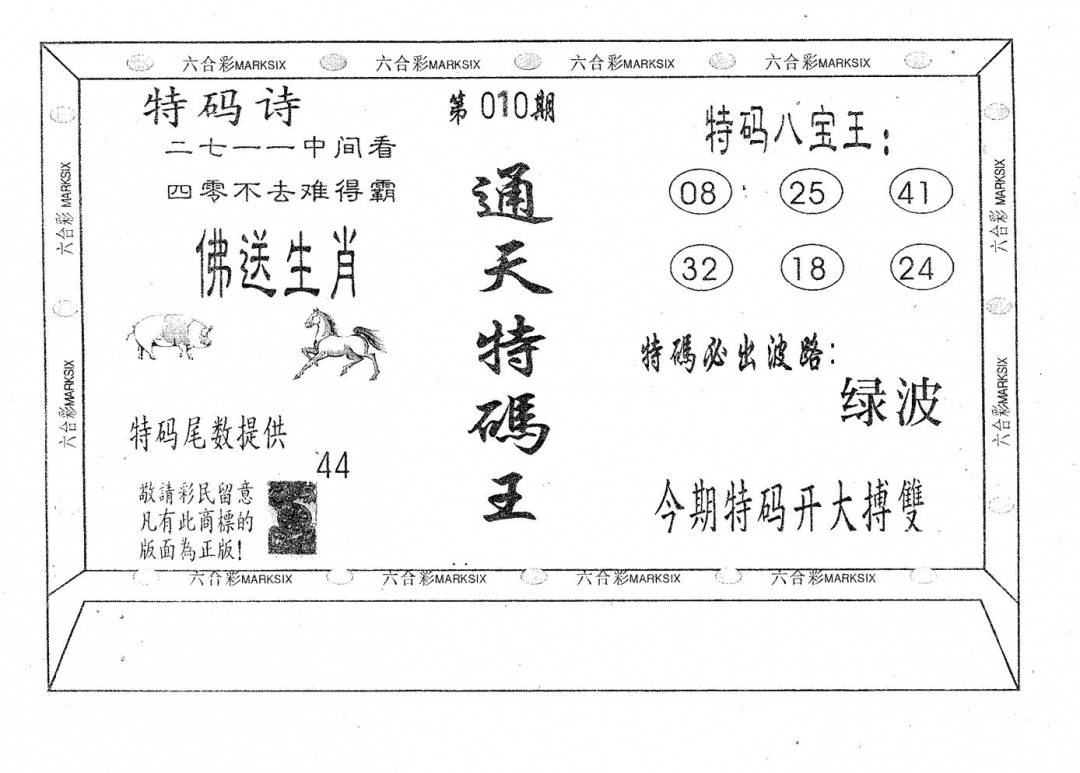 六合彩MARKSIX 六合彩MARKSIX 六合彩MARKSIX 六合彩MARKSIX
六合彩 MARKSIX
六合彩MARKSIX
特码诗
二七一一中间看
四零不去难得霸
佛送生肖
特码尾数提供
44
敬請彩民留意
凡有此商標的
版面為正版!
第010期
通天特碼王
特码八宝王:
08 25 41
32 18 24
特碼必出波路:
绿波
今期特码开大搏雙
六合彩 MARKSIX
六合彩MARKSIX
六合彩MARKSIX 六合彩MARKSIX 六合彩MARKSIX 六合彩MARKSIX